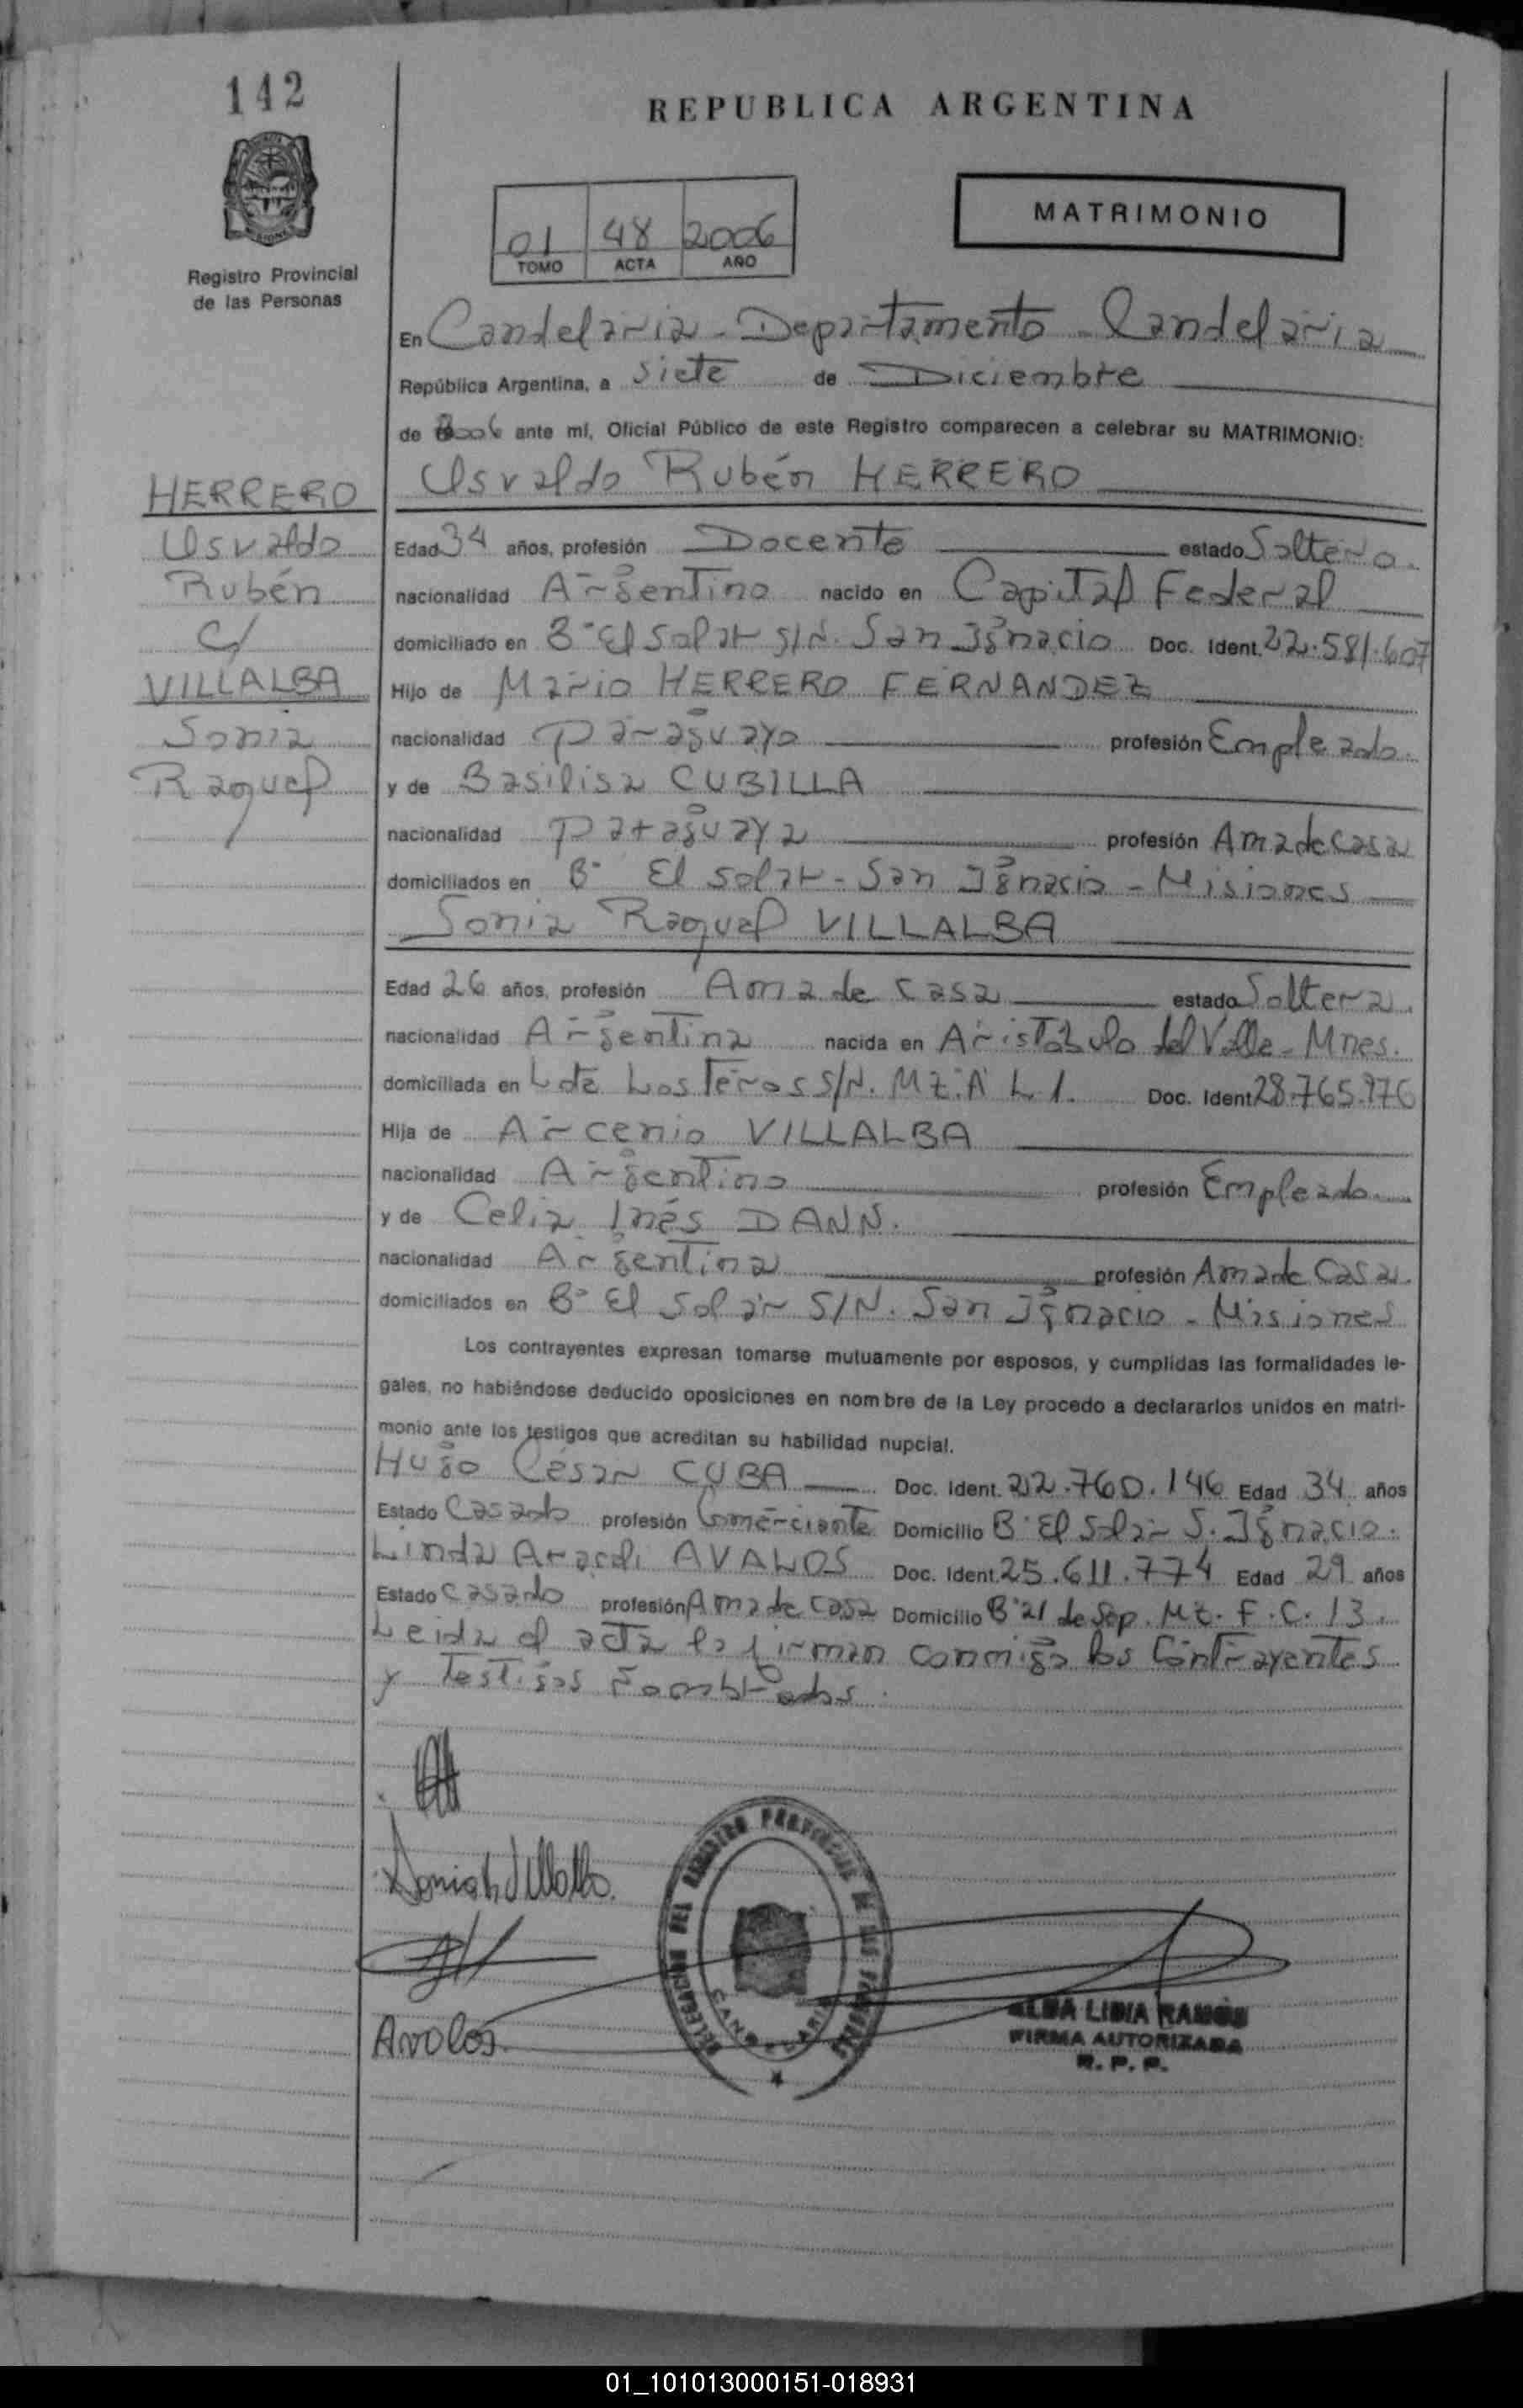 142
REPUBLICA ARGENTINA
Registro Provincial
de las Personas
01 48 2006
TOMO ACTA AÑO
MATRIMONIO
En Candelaria - Departamento Candelaria
República Argentina, a Siete de Diciembre
de 2006 ante mí, Oficial Público de este Registro comparecen a celebrar su MATRIMONIO:
Osvaldo Rubén HERRERO
HERRERO
Osvaldo
Rubén
c/
VILLALBA
Sonia
Raquel
Edad 34 años, profesión Docente estado Soltero.
nacionalidad Argentino nacido en Capital Federal
domiciliado en B° El Solar S/N. San Ignacio Doc. Ident. 22.581.607
Hijo de Mario HERRERO FERNANDEZ
nacionalidad Paraguayo profesión Empleado.
y de Basilisa CUBILLA
nacionalidad Paraguaya profesión Ama de Casa
domiciliados en B° El Solar - San Ignacio - Misiones
Sonia Raquel VILLALBA
Edad 26 años, profesión Ama de Casa estado Soltera.
nacionalidad Argentina nacida en Aristóbulo del Valle - Mnes.
domiciliada en Los Teros S/N. Mz. A L 1. Doc. Ident. 28.765.976
Hija de Arcenio VILLALBA
nacionalidad Argentino profesión Empleado.
y de Celia Inés DANN.
nacionalidad Argentina profesión Ama de Casa.
domiciliados en B° El Solar S/N. San Ignacio - Misiones
Los contrayentes expresan tomarse mutuamente por esposos, y cumplidas las formalidades le-
gales, no habiéndose deducido oposiciones en nombre de la Ley procedo a declararlos unidos en matri-
monio ante los testigos que acreditan su habilidad nupcial.
Hugo César CUBA Doc. Ident. 22.760.146 Edad 34 años
Estado Casado profesión Comerciante Domicilio B° El Solar S. Ignacio.
Linda Araceli AVALOS Doc. Ident. 25.611.774 Edad 29 años
Estado Casado profesión Ama de Casa Domicilio B° 21 de Sep. Mz. F. C. 13.
Leida el acta la firman conmigo los Contrayentes
y Testigos
Avalos
DELEGACION DEL REGISTRO PROVINCIAL DE LAS PERSONAS
CANDELARIA
ALBA LIDIA RAMOS
FIRMA AUTORIZADA
R. P. P.
01_101013000151-018931